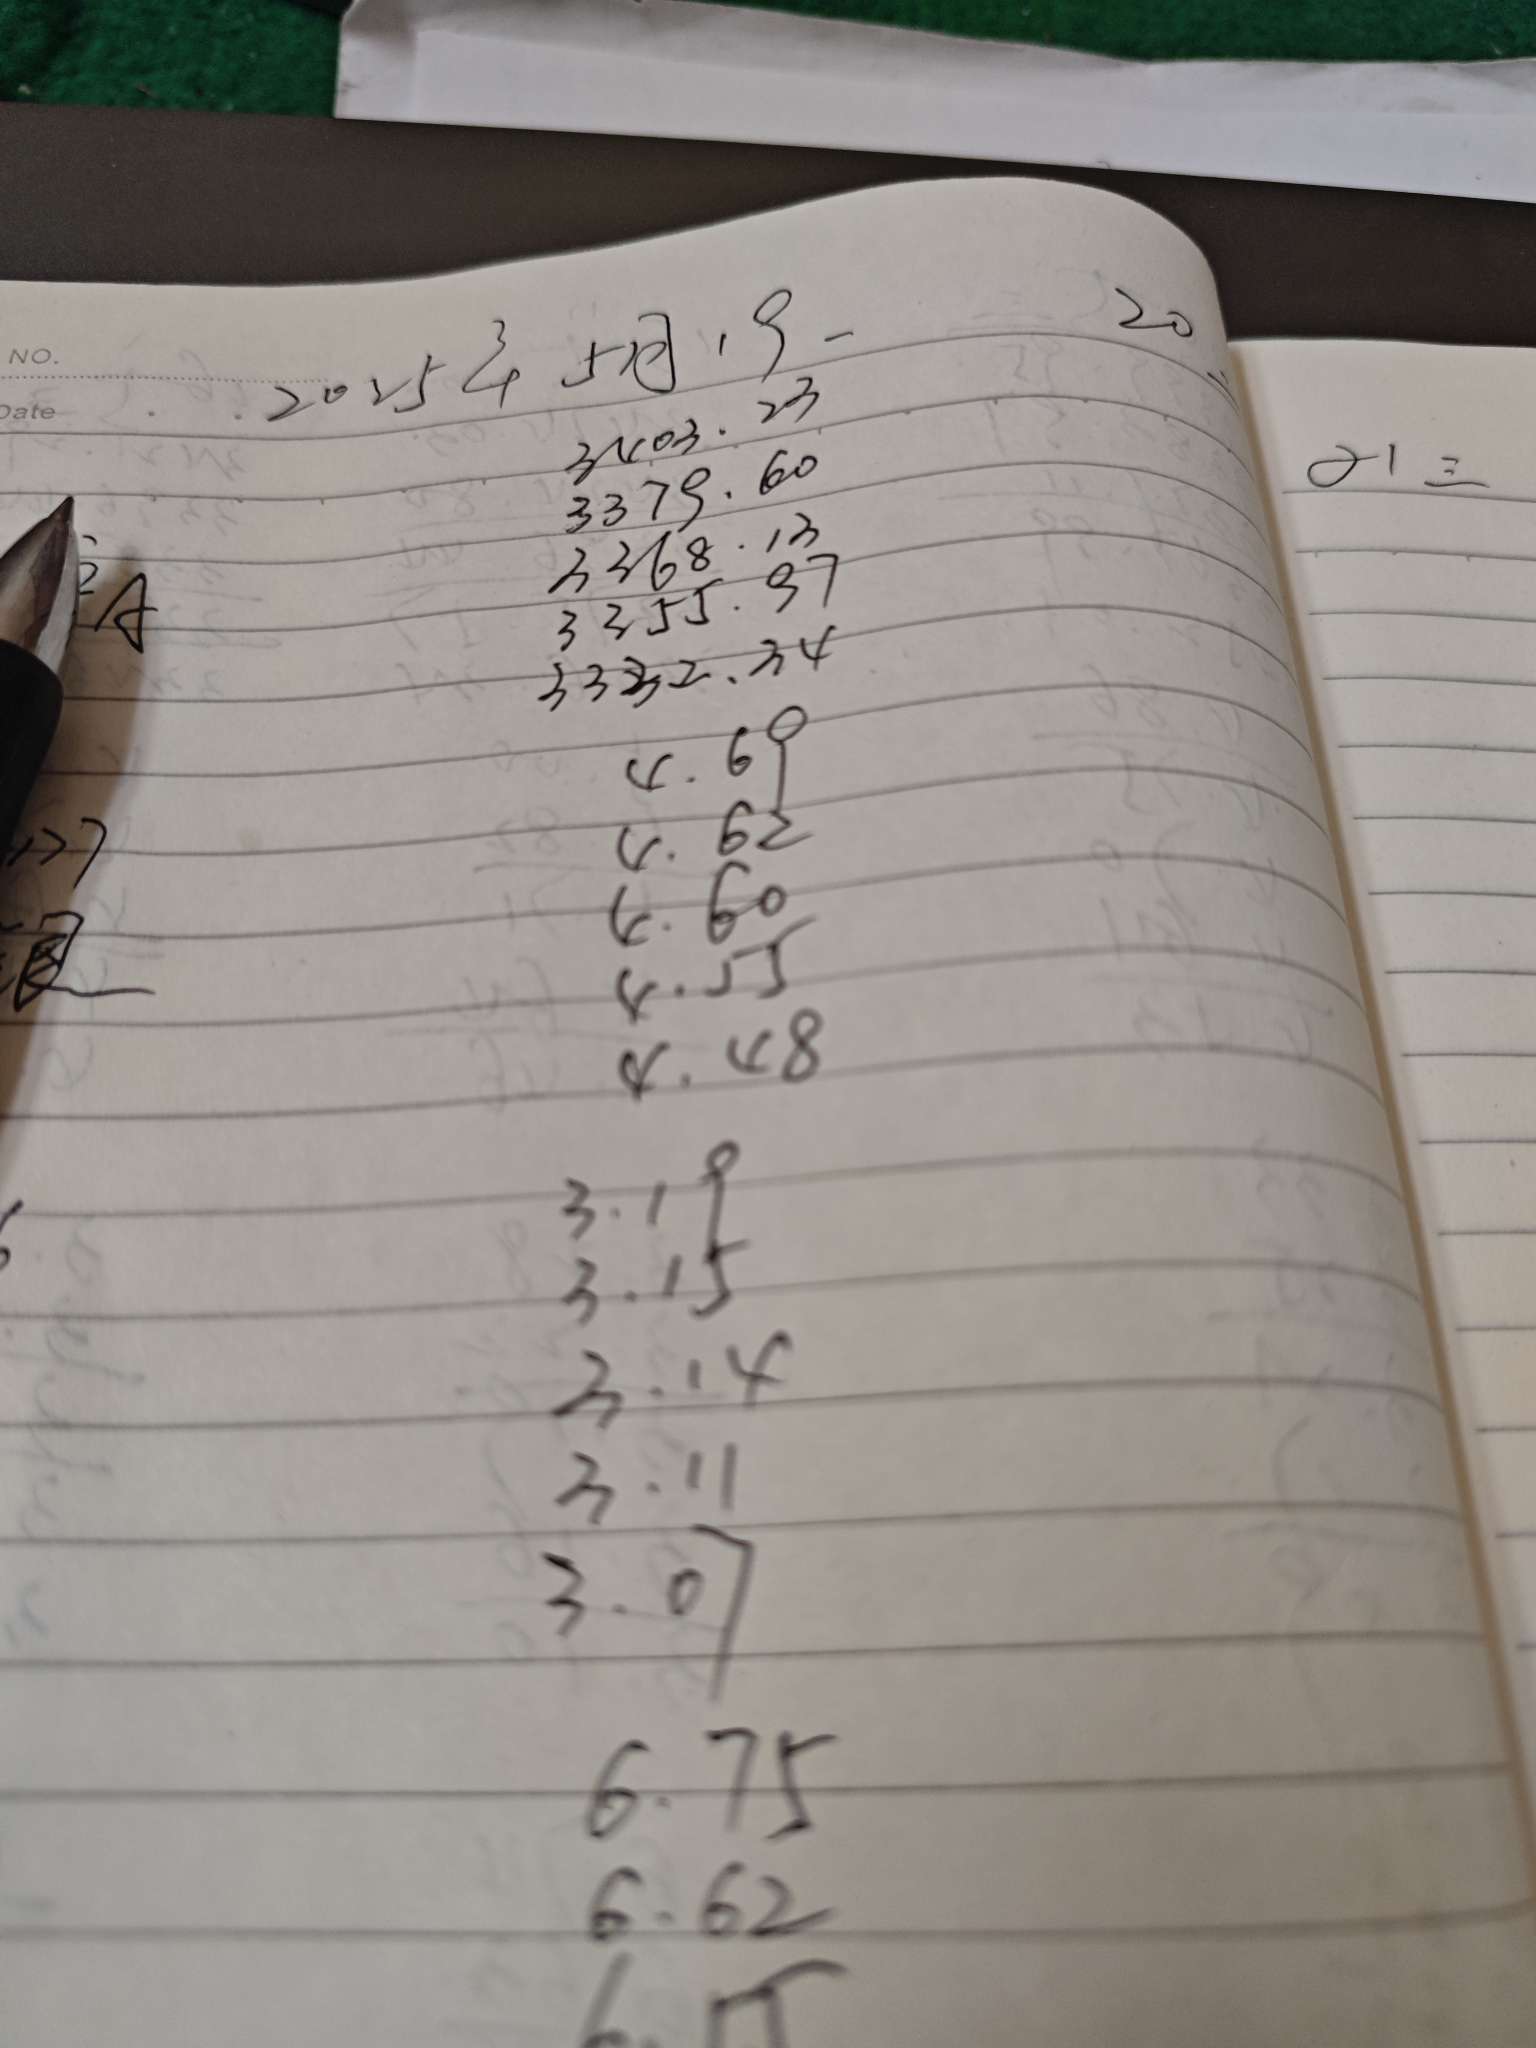 NO.
Date
2025年5月19一
20二
21三
3403.23
3379.60
3368.13
3355.97
3332.34
4.69
4.62
4.60
4.55
4.48
3.19
3.15
3.14
3.11
3.07
6.75
6.62